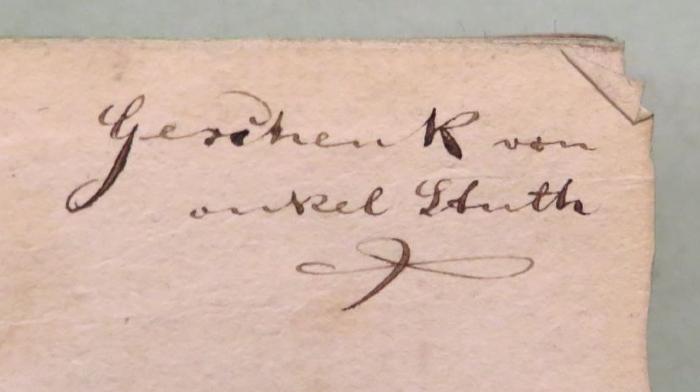 Geschenk von
onkel Stuth